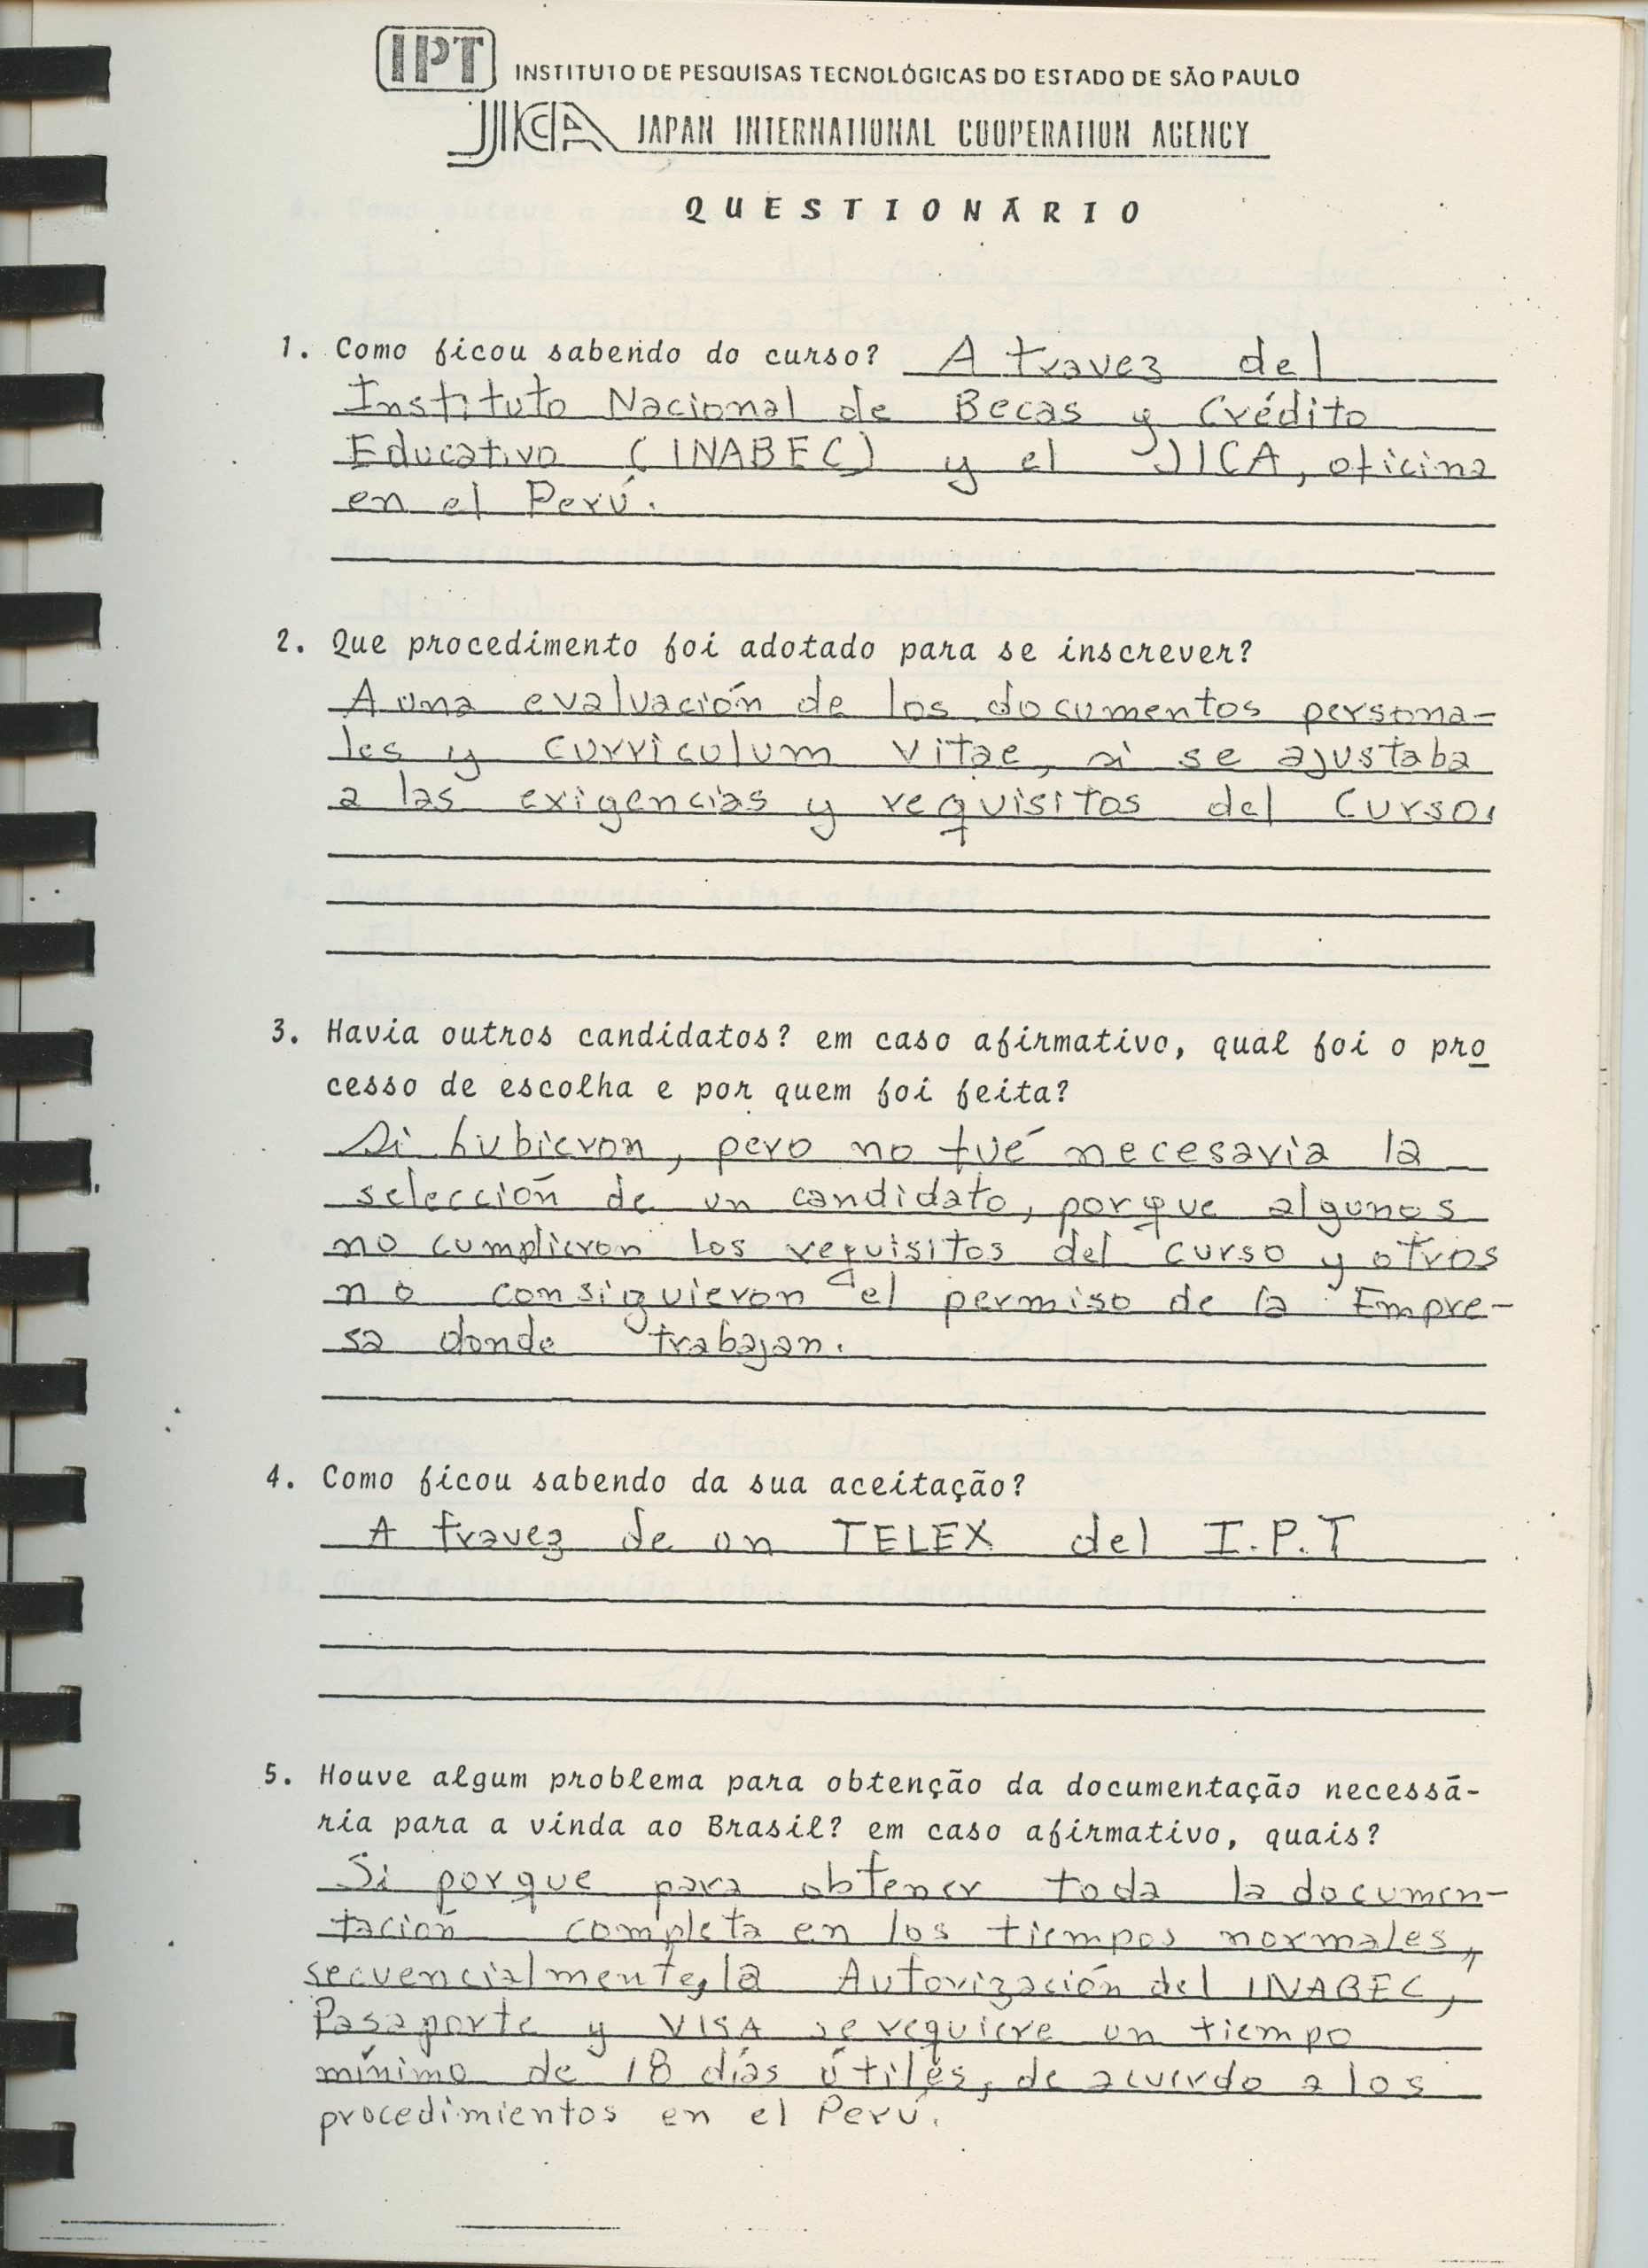 IPT INSTITUTO DE PESQUISAS TECNOLÓGICAS DO ESTADO DE SÃO PAULO
JICA JAPAN INTERNATIONAL COOPERATION AGENCY
QUESTIONÁRIO
1. Como ficou sabendo do curso? A travez del
Instituto Nacional de Becas y Crédito
Educativo (INABEC) y el JICA, oficina
en el Perú.
2. Que procedimento foi adotado para se inscrever?
A una evaluación de los documentos persona-
les y curriculum vitae, si se ajustaba
a las exigencias y requisitos del curso.
3. Havia outros candidatos? em caso afirmativo, qual foi o pro
cesso de escolha e por quem foi feita?
Si hubieron, pero no fué necesaria la
selección de un candidato, porque algunos
no cumplieron los requisitos del curso y otros
no consiguieron el permiso de la Empre-
sa donde trabajan.
4. Como ficou sabendo da sua aceitação?
A travez de un TELEX del I.P.T
5. Houve algum problema para obtenção da documentação necessá-
ria para a vinda ao Brasil? em caso afirmativo, quais?
Si porque para obtener toda la documen-
tación completa en los tiempos normales,
secuencialmente, la Autorización del INABEC,
Pasaporte y VISA se requiere un tiempo
mínimo de 18 días útiles, de acuerdo a los
procedimientos en el Perú.